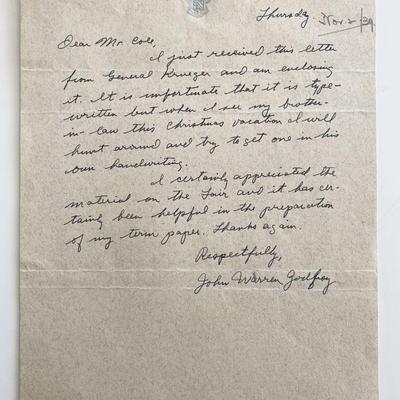 Thursday Nov 2/39
Dear Mr. Cole,
I just received this letter
from General Krueger and am enclosing
it. It is unfortunate that it is type-
written but when I see my brother-
in-law this Christmas vacation I will
hunt around and try to get one in his
own handwriting.
I certainly appreciated the
material on the Fair and it has cer-
tainly been helpful in the preparation
of my term paper. Thanks again.
Respectfully,
John Warren Godfrey